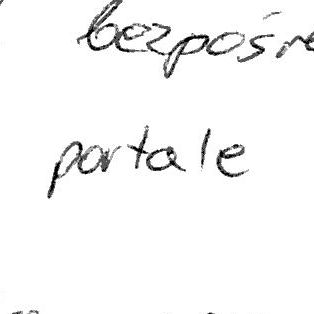 bezpośre
portale